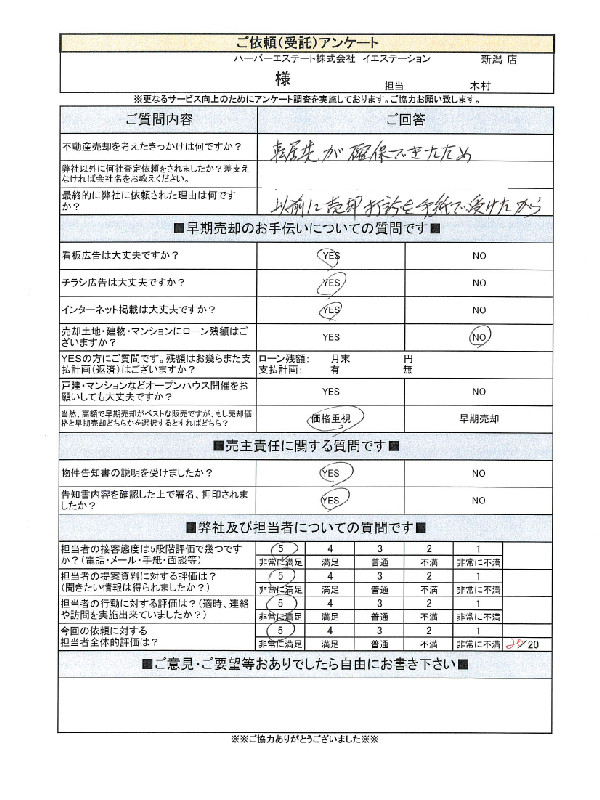 ご依頼(受託)アンケート
ハーバーエステート株式会社 イエステーション 新潟 店
様 担当 木村
※更なるサービス向上のためにアンケート調査を実施しております。ご協力お願い致します。
ご質問内容 ご回答
不動産売却を考えたきっかけは何ですか？ 転居先が確保できたため
弊社以外に何社査定依頼をされましたか？差支え
なければ会社名をお教えください。
最終的に弊社に依頼された理由は何です
か？ 以前に売却打診を手紙で受けたから
■早期売却のお手伝いについての質問です■
看板広告は大丈夫ですか？ YES NO
チラシ広告は大丈夫ですか？ YES NO
インターネット掲載は大丈夫ですか？ YES NO
売却土地・建物・マンションにローン残額はご
ざいますか？ YES NO
YESの方にご質問です。残額はお幾らまた支
払計画(返済)はございますか？
ローン残額: 月末 円
支払計画: 有 無
戸建・マンションなどオープンハウス開催をお
願いしても大丈夫ですか？ YES NO
当然、高額で早期売却がベストな販売ですが、もし売却価
格と早期売却どちらかを選択するとすればどちら？ 価格重視 早期売却
■売主責任に関する質問です■
物件告知書の説明を受けましたか？ YES NO
告知書内容を確認した上で署名、押印されま
したか？ YES NO
■弊社及び担当者についての質問です■
担当者の接客態度は5段階評価で幾つです
か？(電話・メール・手紙・面談等)
5 4 3 2 1
非常に満足 満足 普通 不満 非常に不満
担当者の提案資料に対する評価は？
(聞きたい情報は得られましたか？)
5 4 3 2 1
非常に満足 満足 普通 不満 非常に不満
担当者の行動に対する評価は？(適時、連絡
や訪問を実施出来ていましたか？)
5 4 3 2 1
非常に満足 満足 普通 不満 非常に不満
今回の依頼に対する
担当者全体的評価は？
5 4 3 2 1
非常に満足 満足 普通 不満 非常に不満 20/20
■ご意見・ご要望等おありでしたら自由にお書き下さい■
※※ご協力ありがとうございました※※